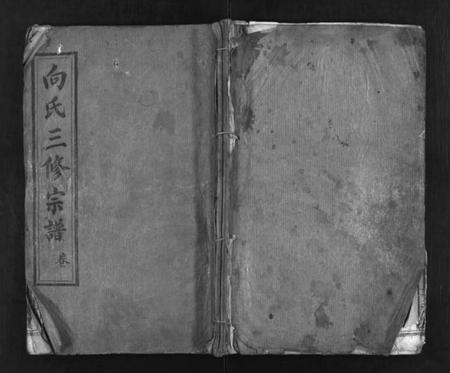 向氏三修宗譜 卷